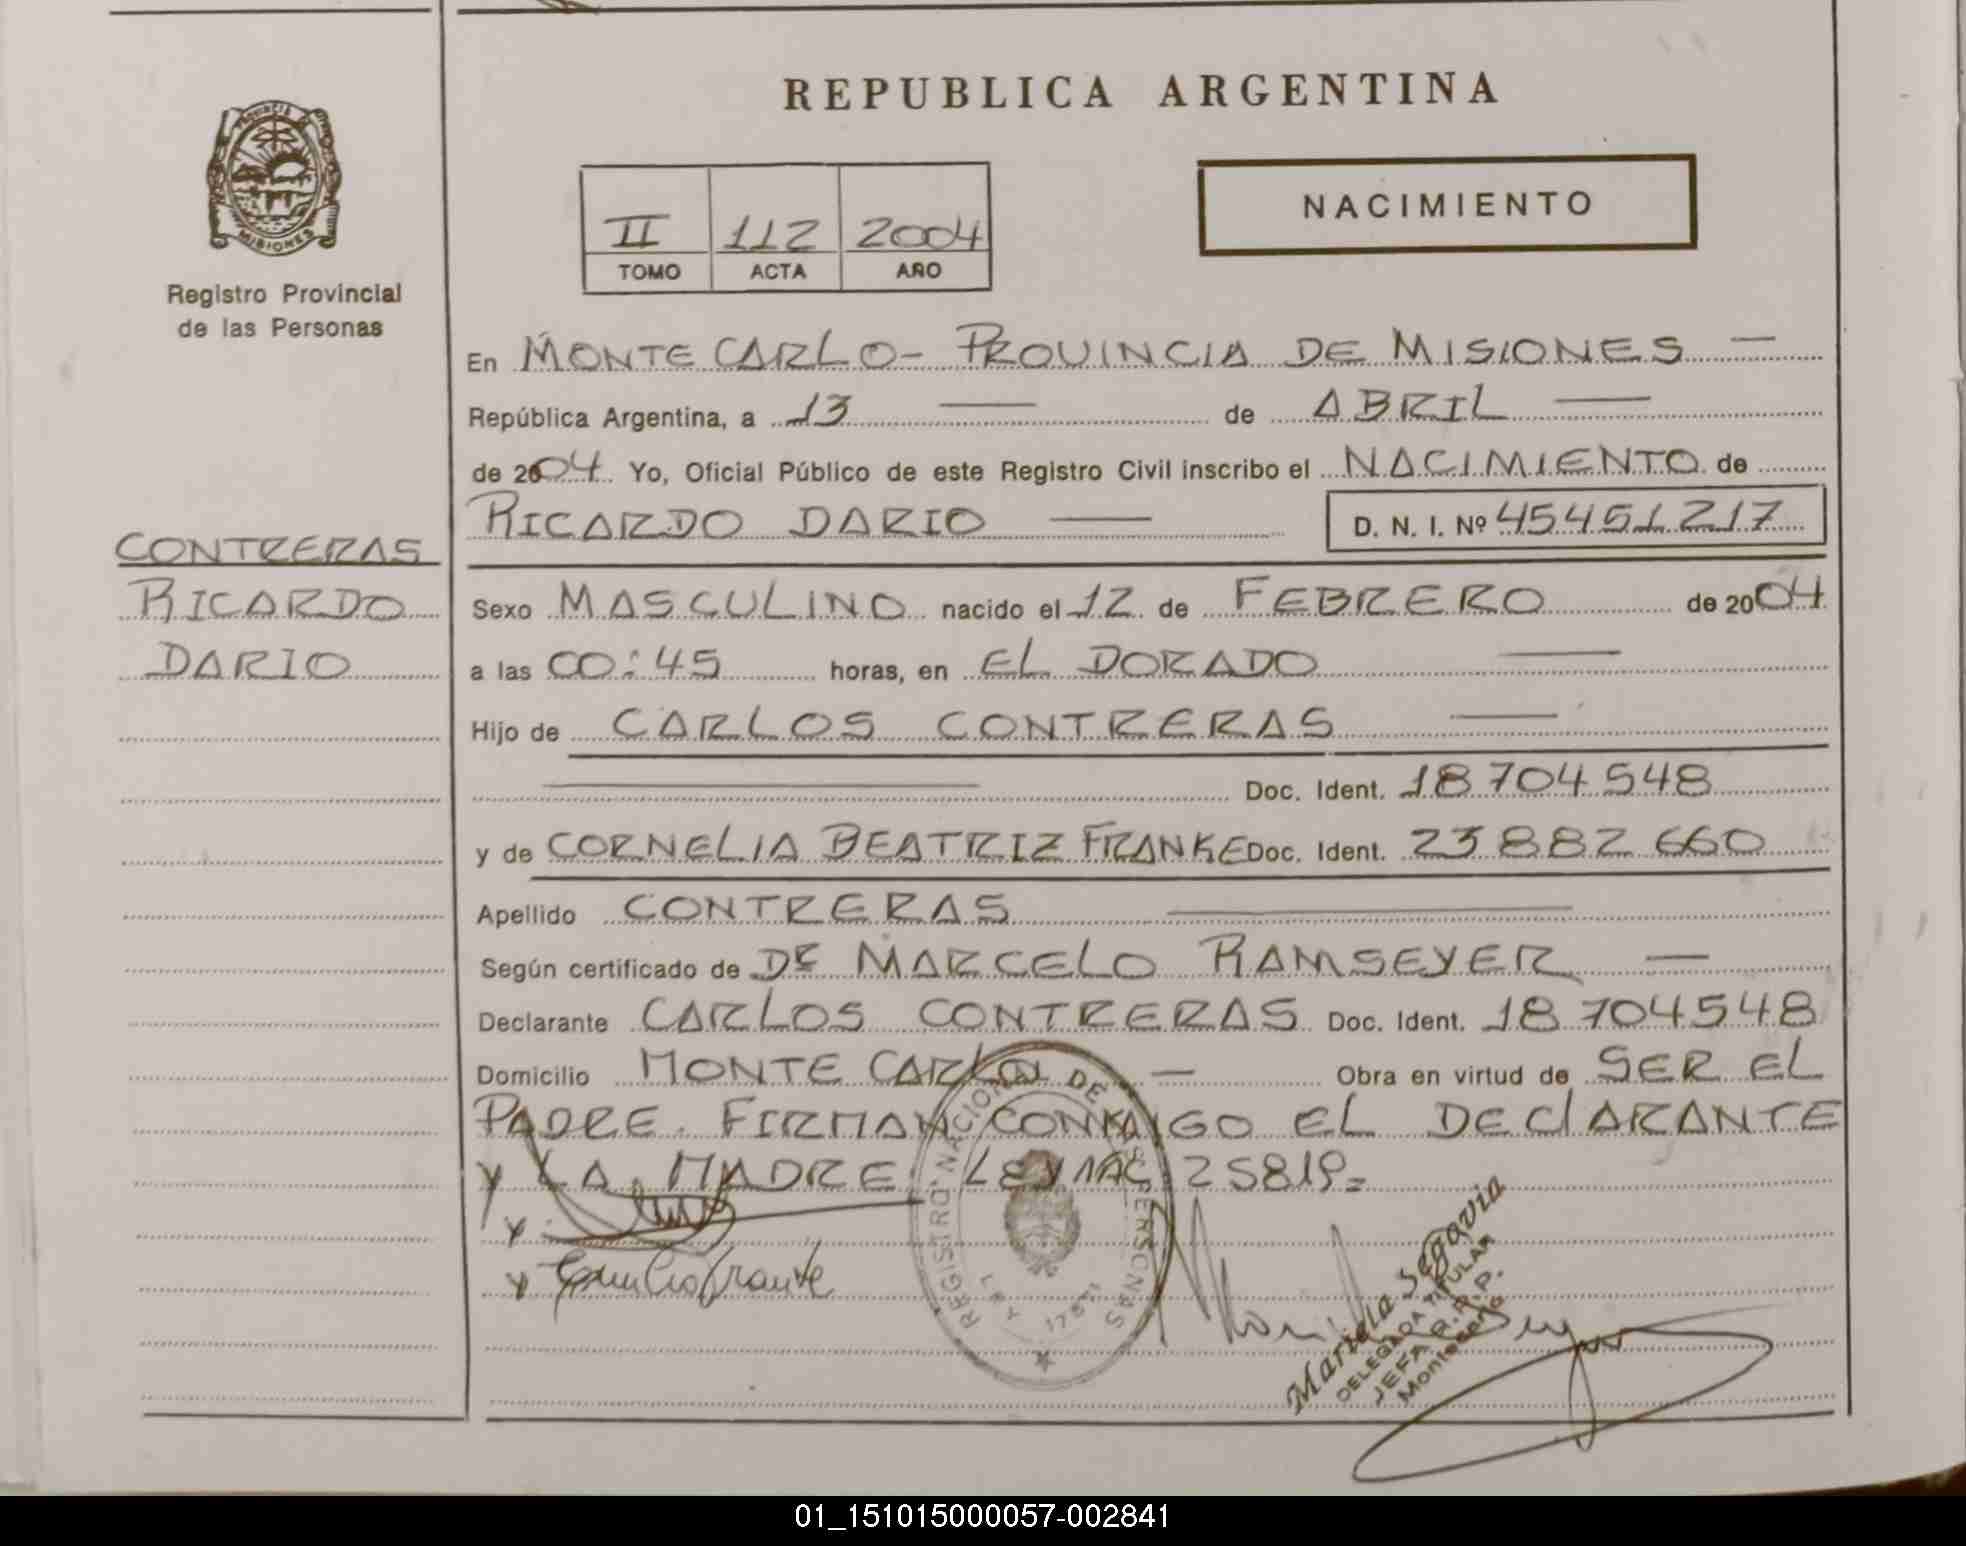 REPUBLICA ARGENTINA
PROVINCIA
MISIONES
Registro Provincial
de las Personas
NACIMIENTO
II 112 2004
TOMO ACTA AÑO
En MONTE CARLO - PROVINCIA DE MISIONES —
República Argentina, a 13 — de ABRIL —
de 2004 Yo, Oficial Público de este Registro Civil inscribo el NACIMIENTO de
RICARDO DARIO — D. N. I. Nº 45451217
CONTRERAS
RICARDO
DARIO
Sexo MASCULINO nacido el 12 de FEBRERO de 2004
a las 00:45 horas, en EL DORADO —
Hijo de CARLOS CONTRERAS —
— Doc. Ident. 18704548
y de CORNELIA BEATRIZ FRANKE Doc. Ident. 23882660
Apellido CONTRERAS —
Según certificado de Dr MARCELO RAMSEYER —
Declarante CARLOS CONTRERAS Doc. Ident. 18704548
Domicilio MONTE CARLO — Obra en virtud de SER EL
PADRE. FIRMAN CONMIGO EL DEClARANTE
y LA MADRE LEY NAC. 25819=
REGISTRO NACIONAL DE LAS PERSONAS
LEY 17671
Mariela Segovia
DELEGADA TITULAR
JEFA R.R.P.
Montecarlo
01_151015000057-002841